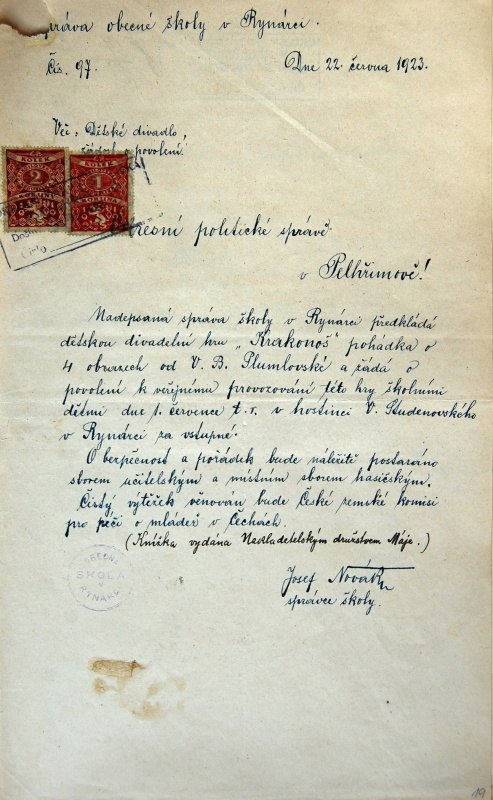 práva obecné školy v Rynárci.
Čís. 97. Dne 22. června 1923.
Věc: Dětské divadlo,
žádost o povolení.
KOLEK
2
KOLEK
1
KORUNA
Došlo
Číslo
resní politické správě
v Pelhřimově!
Nadepsaná správa školy v Rynárci předkládá
dětskou divadelní hru „Krakonoš" pohádka o
4 obrazech od V. B. Plumlovské a žádá o
povolení k veřejnému provozování této hry školními
dětmi dne 1. července t. r. v hostinci V. Studenovského
v Rynárci za vstupné.
O bezpečnost a pořádek bude náležitě postaráno
sborem učitelským a místním sborem hasičským.
Čistý výtěžek věnován bude České zemské komisi
pro péči o mládež v Čechách.
(Knížka vydána Nakladatelským družstvem Máje.)
OBECNÁ
ŠKOLA
V
RYNÁRCI
Josef Novák
správce školy.
19